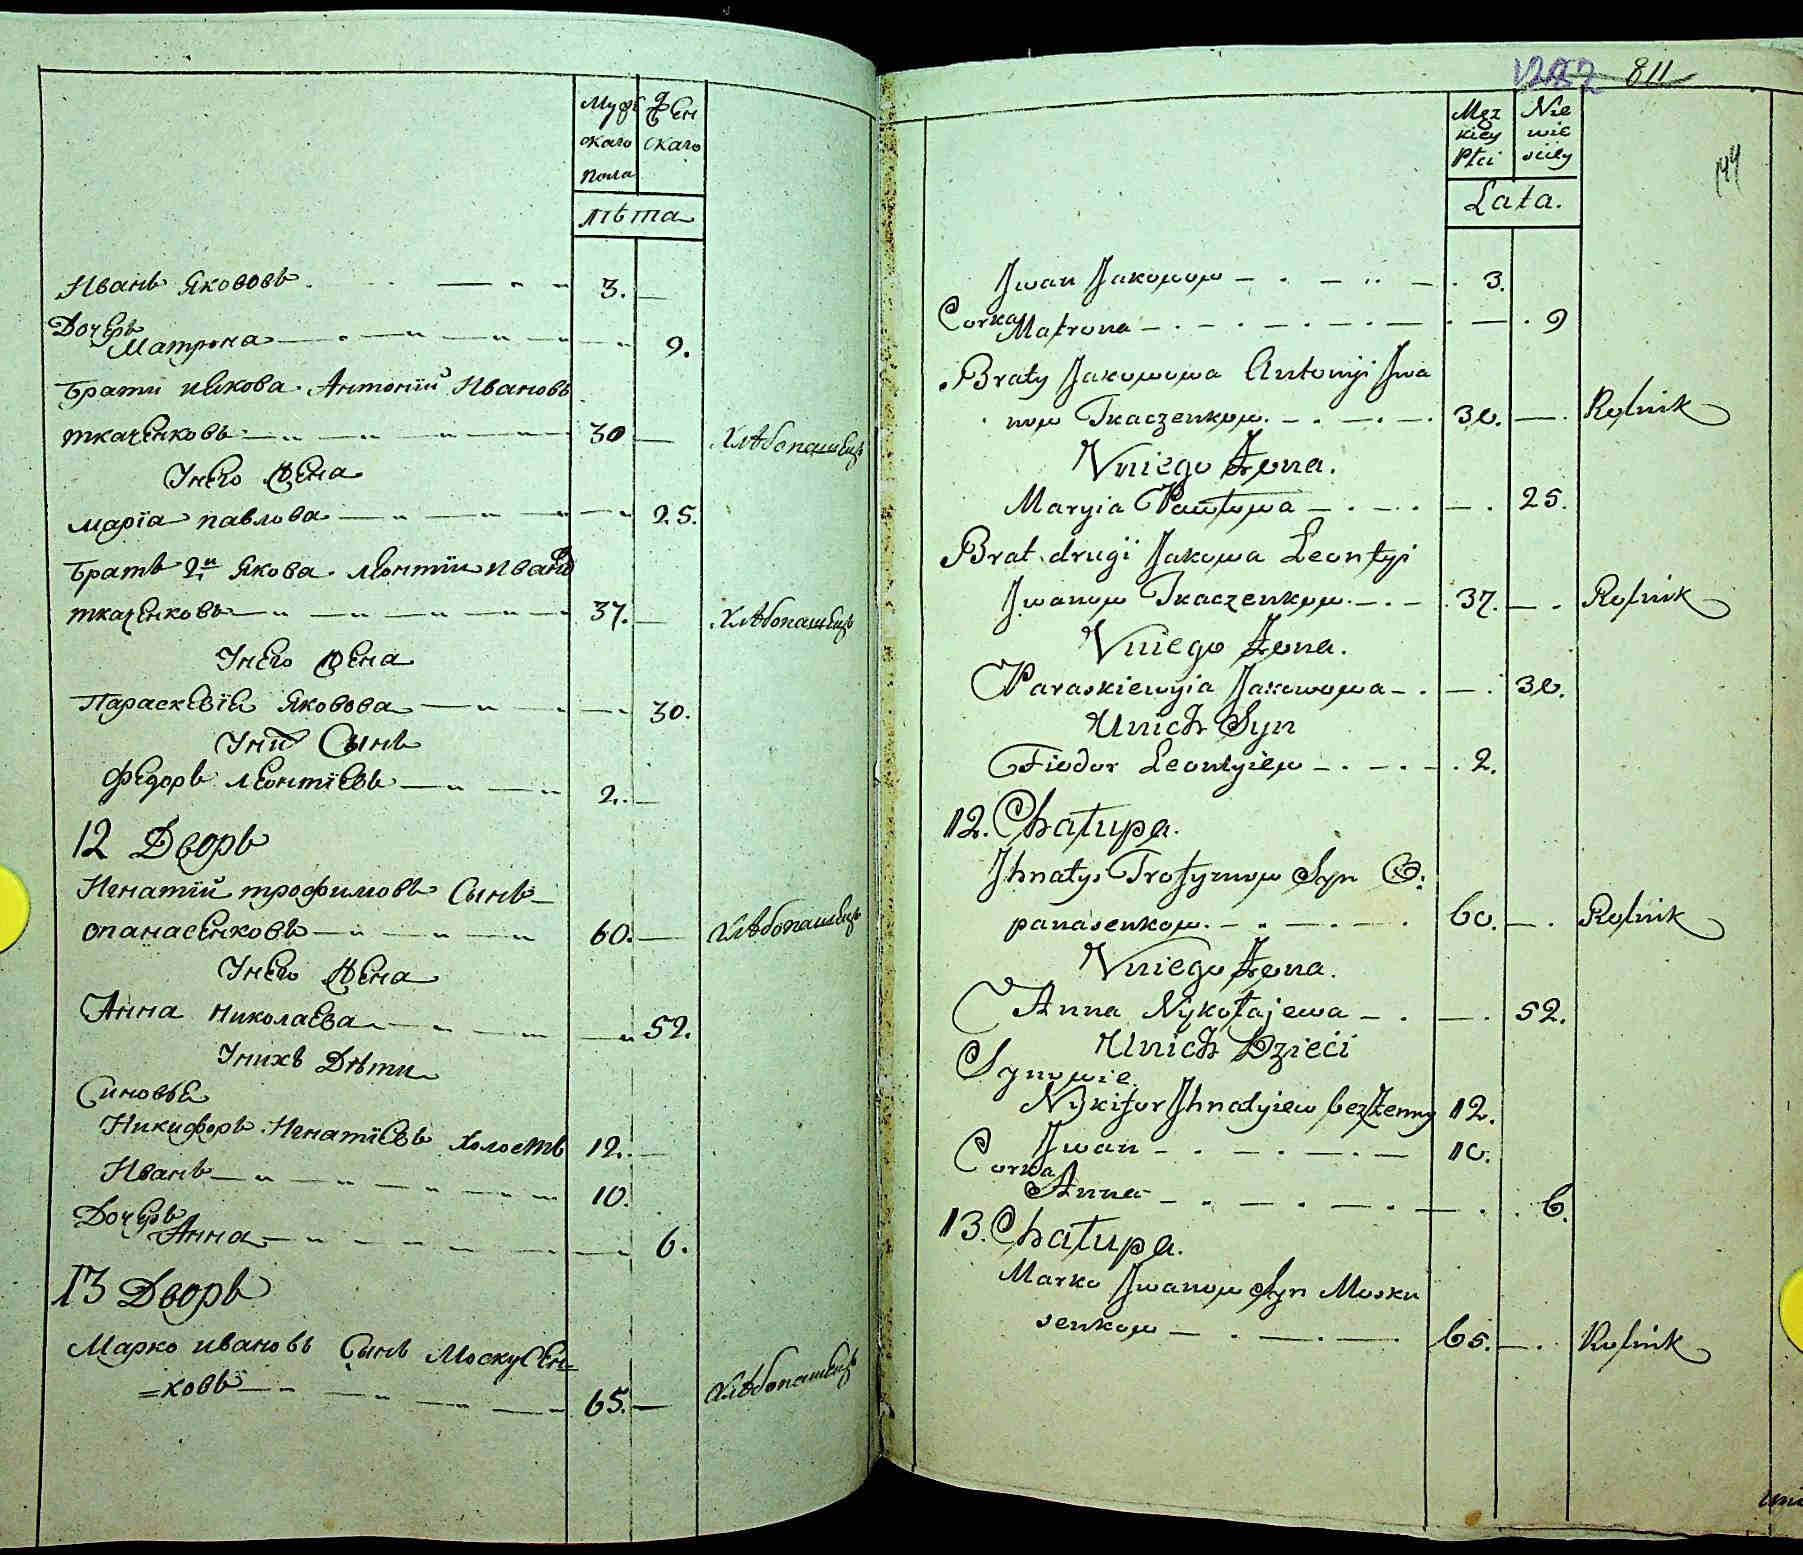 Муж
Жен
скаго
скаго
пола
лѣта
Иванъ Якововъ 3.
Дочерь
Матрона 9.
Брати Якова Антонїй Ивановъ
ткаченковъ 30 Хлѣбопашецъ
Унего Жена
марїа павлова 25.
Братъ 2й Якова леонтїи Иванов
ткаченковъ 37. Хлѣбопашецъ
Унего Жена
Параскевїя Яковова 30.
Уних Сынъ
федоръ леонтїевъ 2.
12 Дворъ
Игнатїй трофимовъ Сынъ
опанасенковъ 60. Хлѣбопашецъ
Унего Жена
Анна николаева 52.
Унихъ Дѣти
Синовья
Никифоръ Игнатїевъ холостъ 12.
Иванъ 10.
Дочерь
Анна 6.
13 Дворъ
Марко ивановъ Сынъ Москусен=
=ковъ 65. Хлѣбопашецъ
811
Męz Nie
kiey wie
Płci sciey
Lata.
Jwan Jakowow 3.
Corka
Matrona 9
Braty Jakowowa Antonji Jwa
now Tkaczenkow. 30. Rolnik
Vniego Żona.
Maryia Pawłowa 25.
Brat drugi Jakowa Leontyi
Jwanow Tkaczenkow. 37. Rolnik
Vniego Żona.
Paraskiewyia Jakowowa 30.
Unich Syn
Fiodor Leontyiew 2.
12. Chałupa.
Jhnatyi Trofymow Syn O:
panasenkow. 60. Rolnik
Vniego Żona.
Anna Nykołajewa 52.
Unich Dzieci
Synowie
Nykifor Jhnatyiew bezżenny 12.
Jwan 10.
Corka
Anna 6.
13. Chałupa.
Marko Jwanow Syn Mosku
senkow 65. Rolnik